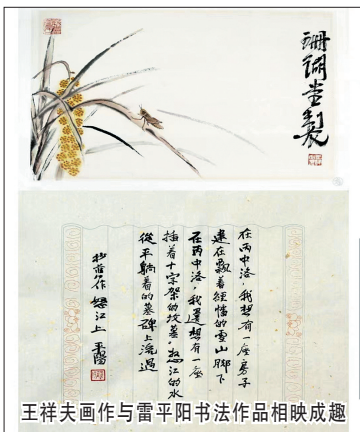 珊瑚堂制
在丙中洛,我想有一座房子
建在飘着经幡的雪山脚下
在丙中洛,我還想有一座
插着十字架的坟墓,怒江的水
從平躺着的墓碑上流過
抄舊作 怒江上 平陽
王祥夫画作与雷平阳书法作品相映成趣